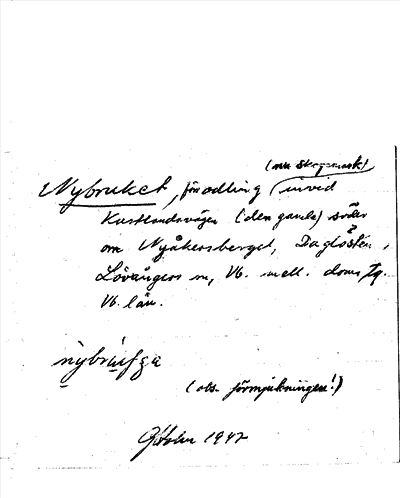 (nu Skogsmark)
Nybruket, förodling invid
Kustlandsvägen (den gamla) söder
om Nyåkersberget, Daglösten,
Lövångers sn, Vb. mell. doms, tg.
Vb. län.
(obs. förmjukningen!)
1947